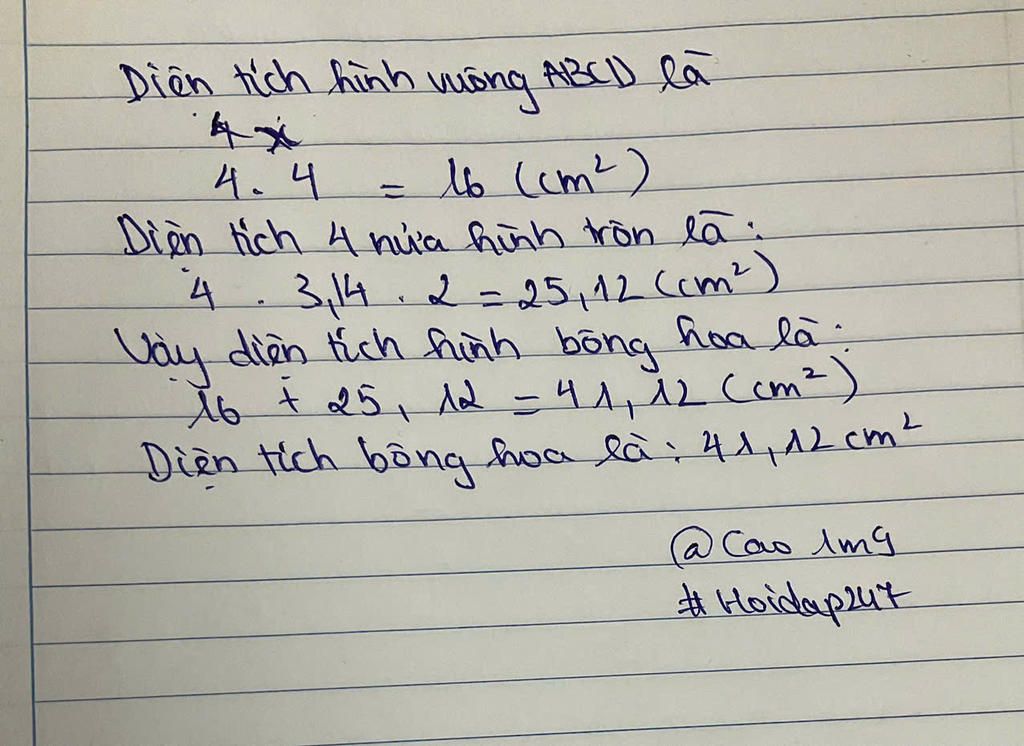 Diện tích hình vuông ABCD là
4 x
4. 4 = 16 (cm²)
Diện tích 4 nửa hình tròn là:
4 . 3,14 . 2 = 25,12 (cm²)
Vậy diện tích hình bông hoa là:
16 + 25, 12 = 41,12 (cm²)
Diện tích bông hoa là: 41,12 cm²
@Cao 1m9
#Hoidap247